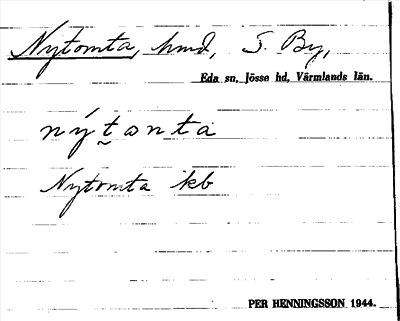 Nytomta, hmd, S. By,
Eda sn, Jösse hd, Värmlands län.
nýt̬ɷnta
Nytomta ikb
PER HENNINGSSON 1944.